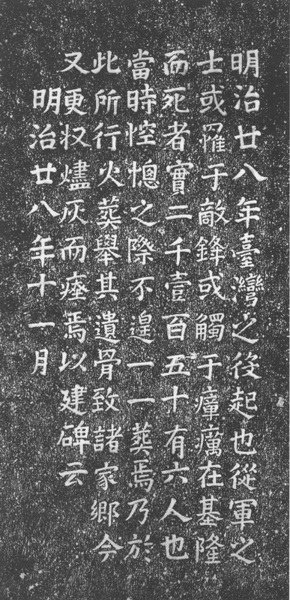 明治廿八年臺灣之役起也從軍之
士或罹于敵鋒或觸于瘴癘在基隆
而死者實二千壹百五十有六人也
當時悾惚之際不遑一一葬焉乃於
此所行火葬舉其遺骨致諸家鄉今
又更収燼灰而瘞焉以建碑云
明治廿八年十一月